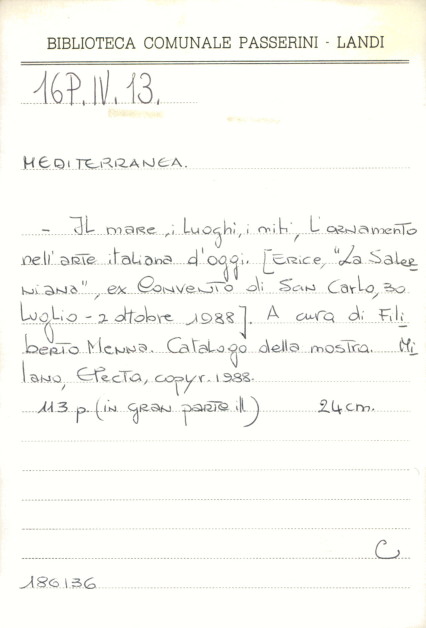 BIBLIOTECA COMUNALE PASSERINI - LANDI
16P.IV.13.
MEDITERRANEA.
- Il mare, i luoghi, i miti, l'ornamento
nell'arte italiana d'oggi. [ERICE, "La Saler
niana", ex Convento di San Carlo, 30
Luglio - 2 ottobre 1988]. A cura di Fili
berto Menna. Catalogo della mostra. Mi
lano, Electa, copyr. 1988.
113 p. (in gran parte ill) 24 cm.
C
186136